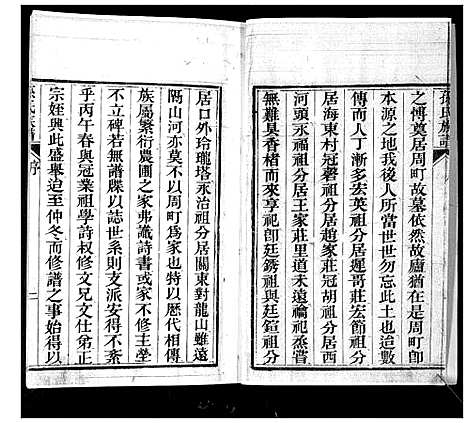 孫氏族譜
之博奠居周町故墓依然故廬猶在是周町卽
本源之地我後人所當世世勿忘此土也迨數
傳而人丁漸多宏英祖分居遲哥莊宏節祖分
居海東村冠磬祖分居趙家莊冠胡祖分居西
河頭永福祖分居王家莊里道未遠禴祀烝嘗
無難具香楮而來享祀卽廷銹祖與廷鍹祖分
居口外玲瓏塔永治祖分居關東對龍山雖遠
隔山河亦莫不以周町爲家也特以歷代相傳
族屬繁衍農圃之家弗識詩書或家不修主塋
不立碑若無譜牒以誌世系則支派安得不紊
乎丙午春與冠業祖學詩权修文兄文仕弟正
宗姪興此盛舉迨至仲冬而修譜之事始得以
序
二